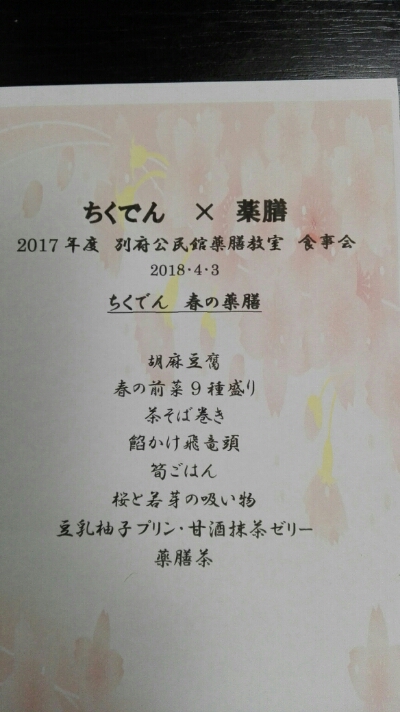 ちくでん × 薬膳
2017年度 別府公民館薬膳教室 食事会
2018・4・3
ちくでん 春の薬膳
胡麻豆腐
春の前菜9種盛り
茶そば巻き
餡かけ飛竜頭
筍ごはん
桜と若芽の吸い物
豆乳柚子プリン・甘酒抹茶ゼリー
薬膳茶